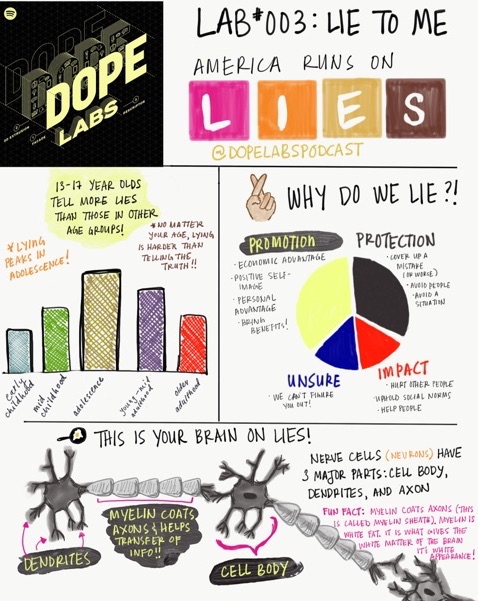 DOPE
LABS
LAB #003: LIE TO ME
AMERICA RUNS ON
LIES
@DOPELABSPODCAST
13-17 YEAR OLDS
TELL MORE LIES
THAN THOSE IN OTHER
AGE GROUPS!
*LYING
PEAKS IN
ADOLESCENCE!
*NO MATTER
YOUR AGE, LYING
IS HARDER THAN
TELLING THE
TRUTH!!
early
childhood
mid
childhood
adolescence
young-mid
adulthood
older
adulthood
WHY DO WE LIE?!
PROMOTION
· ECONOMIC ADVANTAGE
· POSITIVE SELF-
IMAGE
· PERSONAL
ADVANTAGE
· BRING
BENEFITS!
PROTECTION
· COVER UP A
MISTAKE
(OR WORSE)
· AVOID PEOPLE
· AVOID A
SITUATION
UNSURE
· WE CAN'T FIGURE
YOU OUT!
IMPACT
· HURT OTHER PEOPLE
· UPHOLD SOCIAL NORMS
· HELP PEOPLE
THIS IS YOUR BRAIN ON LIES!
NERVE CELLS (NEURONS) HAVE
3 MAJOR PARTS: CELL BODY,
DENDRITES, AND AXON
DENDRITES
MYELIN COATS
AXONS & HELPS
TRANSFER OF
INFO!!
CELL BODY
FUN FACT: MYELIN COATS AXONS (THIS
IS CALLED MYELIN SHEATH), MYELIN IS
WHITE FAT. IT IS WHAT GIVES THE
WHITE MATTER OF THE BRAIN
ITS WHITE
APPEARANCE!